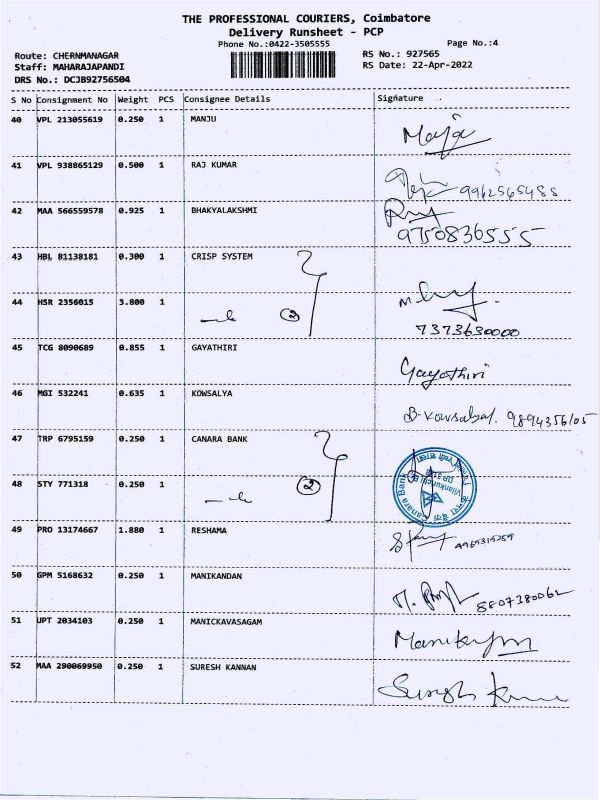 THE PROFESSIONAL COURIERS, Coimbatore
Delivery Runsheet - PCP
Phone No.:0422-3505555 Page No.:4
Route: CHERNMANAGAR RS No.: 927565
Staff: MAHARAJAPANDI RS Date: 22-Apr-2022
DRS No.: DCJB92756504
S No Consignment No Weight PCS Consignee Details Signature
40 VPL 213055619 0.250 1 MANJU
41 VPL 938865129 0.500 1 RAJ KUMAR 9962565488
42 MAA 566559578 0.925 1 BHAKYALAKSHMI 9750836555
43 HBL 81138181 0.300 1 CRISP SYSTEM
44 HSR 2356015 3.800 1 2 7373630000
45 TCG 8090689 0.855 1 GAYATHIRI Gayathiri
46 MGI 532241 0.635 1 KOWSALYA B. Kowsalya. 9894356105
47 TRP 6795159 0.250 1 CANARA BANK Canara Bank
48 STY 771318 0.250 1 2
49 PRO 13174667 1.880 1 RESHAMA
50 GPM 5168632 0.250 1 MANIKANDAN 8807380062
51 UPT 2034103 0.250 1 MANICKAVASAGAM
52 MAA 290069950 0.250 1 SURESH KANNAN Suresh